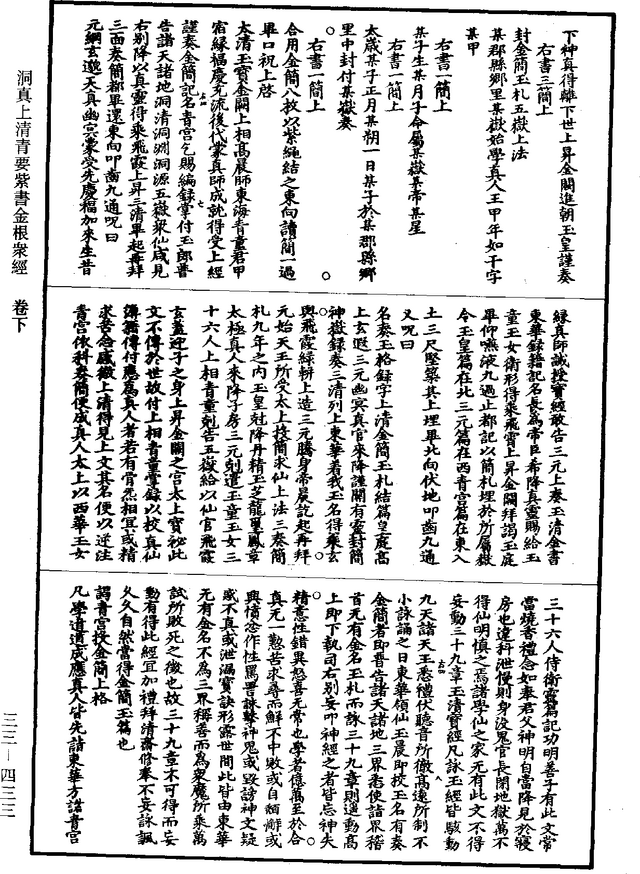 下神真得離下世上昇金闕進朝玉皇謹奏
右書三簡上
封金簡玉札五嶽上法
某郡縣鄉里某嶽始學真人王甲年如干字
某甲
右書一簡上
某子生某月子命屬某嶽某帝某星
右書一簡上
太歲某子正月某朔一日某子於某郡縣鄉
里中封付某嶽奏
右書一簡上
合用金簡八枚以紫繩結之東向讀簡一過
畢口祝上啓
太清玉寶金闕上相高晨師東海青童君甲
宿緣福慶充流後代蒙真師成就得受上經
謹奏金簡記名青宮乞賜編錄掌付玉郎普
告諸天諸地洞清洞淵洞源五嶽眾仙咸見
右別降以真靈得乘飛霞上昇三清畢起再拜
三面奏簡都畢還東向叩齒九通呪曰
元綱玄邈天真幽冥蒙受先慶福加來生昔
緣真師誡授寶經敢告三元上奏玉清金書
東華錄籍記名長為帝臣希降真靈賜給玉
童玉女衛形得乘飛霄上昇金闕拜謁玉庭
畢仰嚥液九過止都記以簡札埋於所屬嶽
令玉皇篇在北三元篇在西青宮篇在東入
土三尺堅築其上埋畢北向伏地叩齒九通
又呪曰
名奏玉格錄字上清金簡玉札結篇皇庭高
上玄暇三元幽冥真官來降謹開有靈封簡
神嶽錄奏三清列上東華着我玉名得乘玄
輿飛霞綠軿上造三元騰身帝晨訖起再拜
元始天王所受太上投簡求仙上法三奏簡
札九年之內玉皇尅降丹精玉芝龍璽鳳章
太極真人來降子房三元尅遣玉童玉女三
十六人上相青童尅告五嶽給以仙官飛霞
玄蓋迎子之身上昇金闕之宮太上寶祕此
文不傳於世故付上相青童掌錄以授真仙
簿籍傳付應為真人者若有骨炁相宜或精
求苦念感徹上清得見上文其名便以逆注
青宮依科奏簡便成真人太上以西華玉女
三十六人侍衛靈篇記功明善子有此文常
當燒香禮念如奉君父神明自當降見於寢
房也違科泄慢則身沒鬼官長閉地獄萬不
得仙明慎之焉諸學仙之家无有此文不得
妄動三十九章玉清寶經凡詠玉經皆駭動
九天諸天王悉禮伏聽音所徹高遠所制不
小詠誦之日東華領仙玉晨即披玉名有奏
金簡者即普告諸天諸地三界悉使諸界稽
首无有金名玉札而詠三十九章則逼動高
上即下執司右別妄叩神經之者皆忘神失
精意性錯異怒喜无常也學者億萬至於合
真无一懃苦求尋而鮮不中敗或自頹解或
與憤忿作性罵詈謀擊神鬼或毀謗神文疑
惑不真或泄漏寶訣形露世間此皆由東華
无有金名不為三界稱善而為衆魔所乘萬
試所敗死之徵也故三十九章不可得而妄
動有得此經宜加禮拜清齋修奉不妄詠諷
久久自然當得金簡玉篇也
謁青宮投金簡上格
凡學道道成應真人皆先詣東華方諸青宮
洞真上清青要紫書金根衆經　卷下
三三—四三三